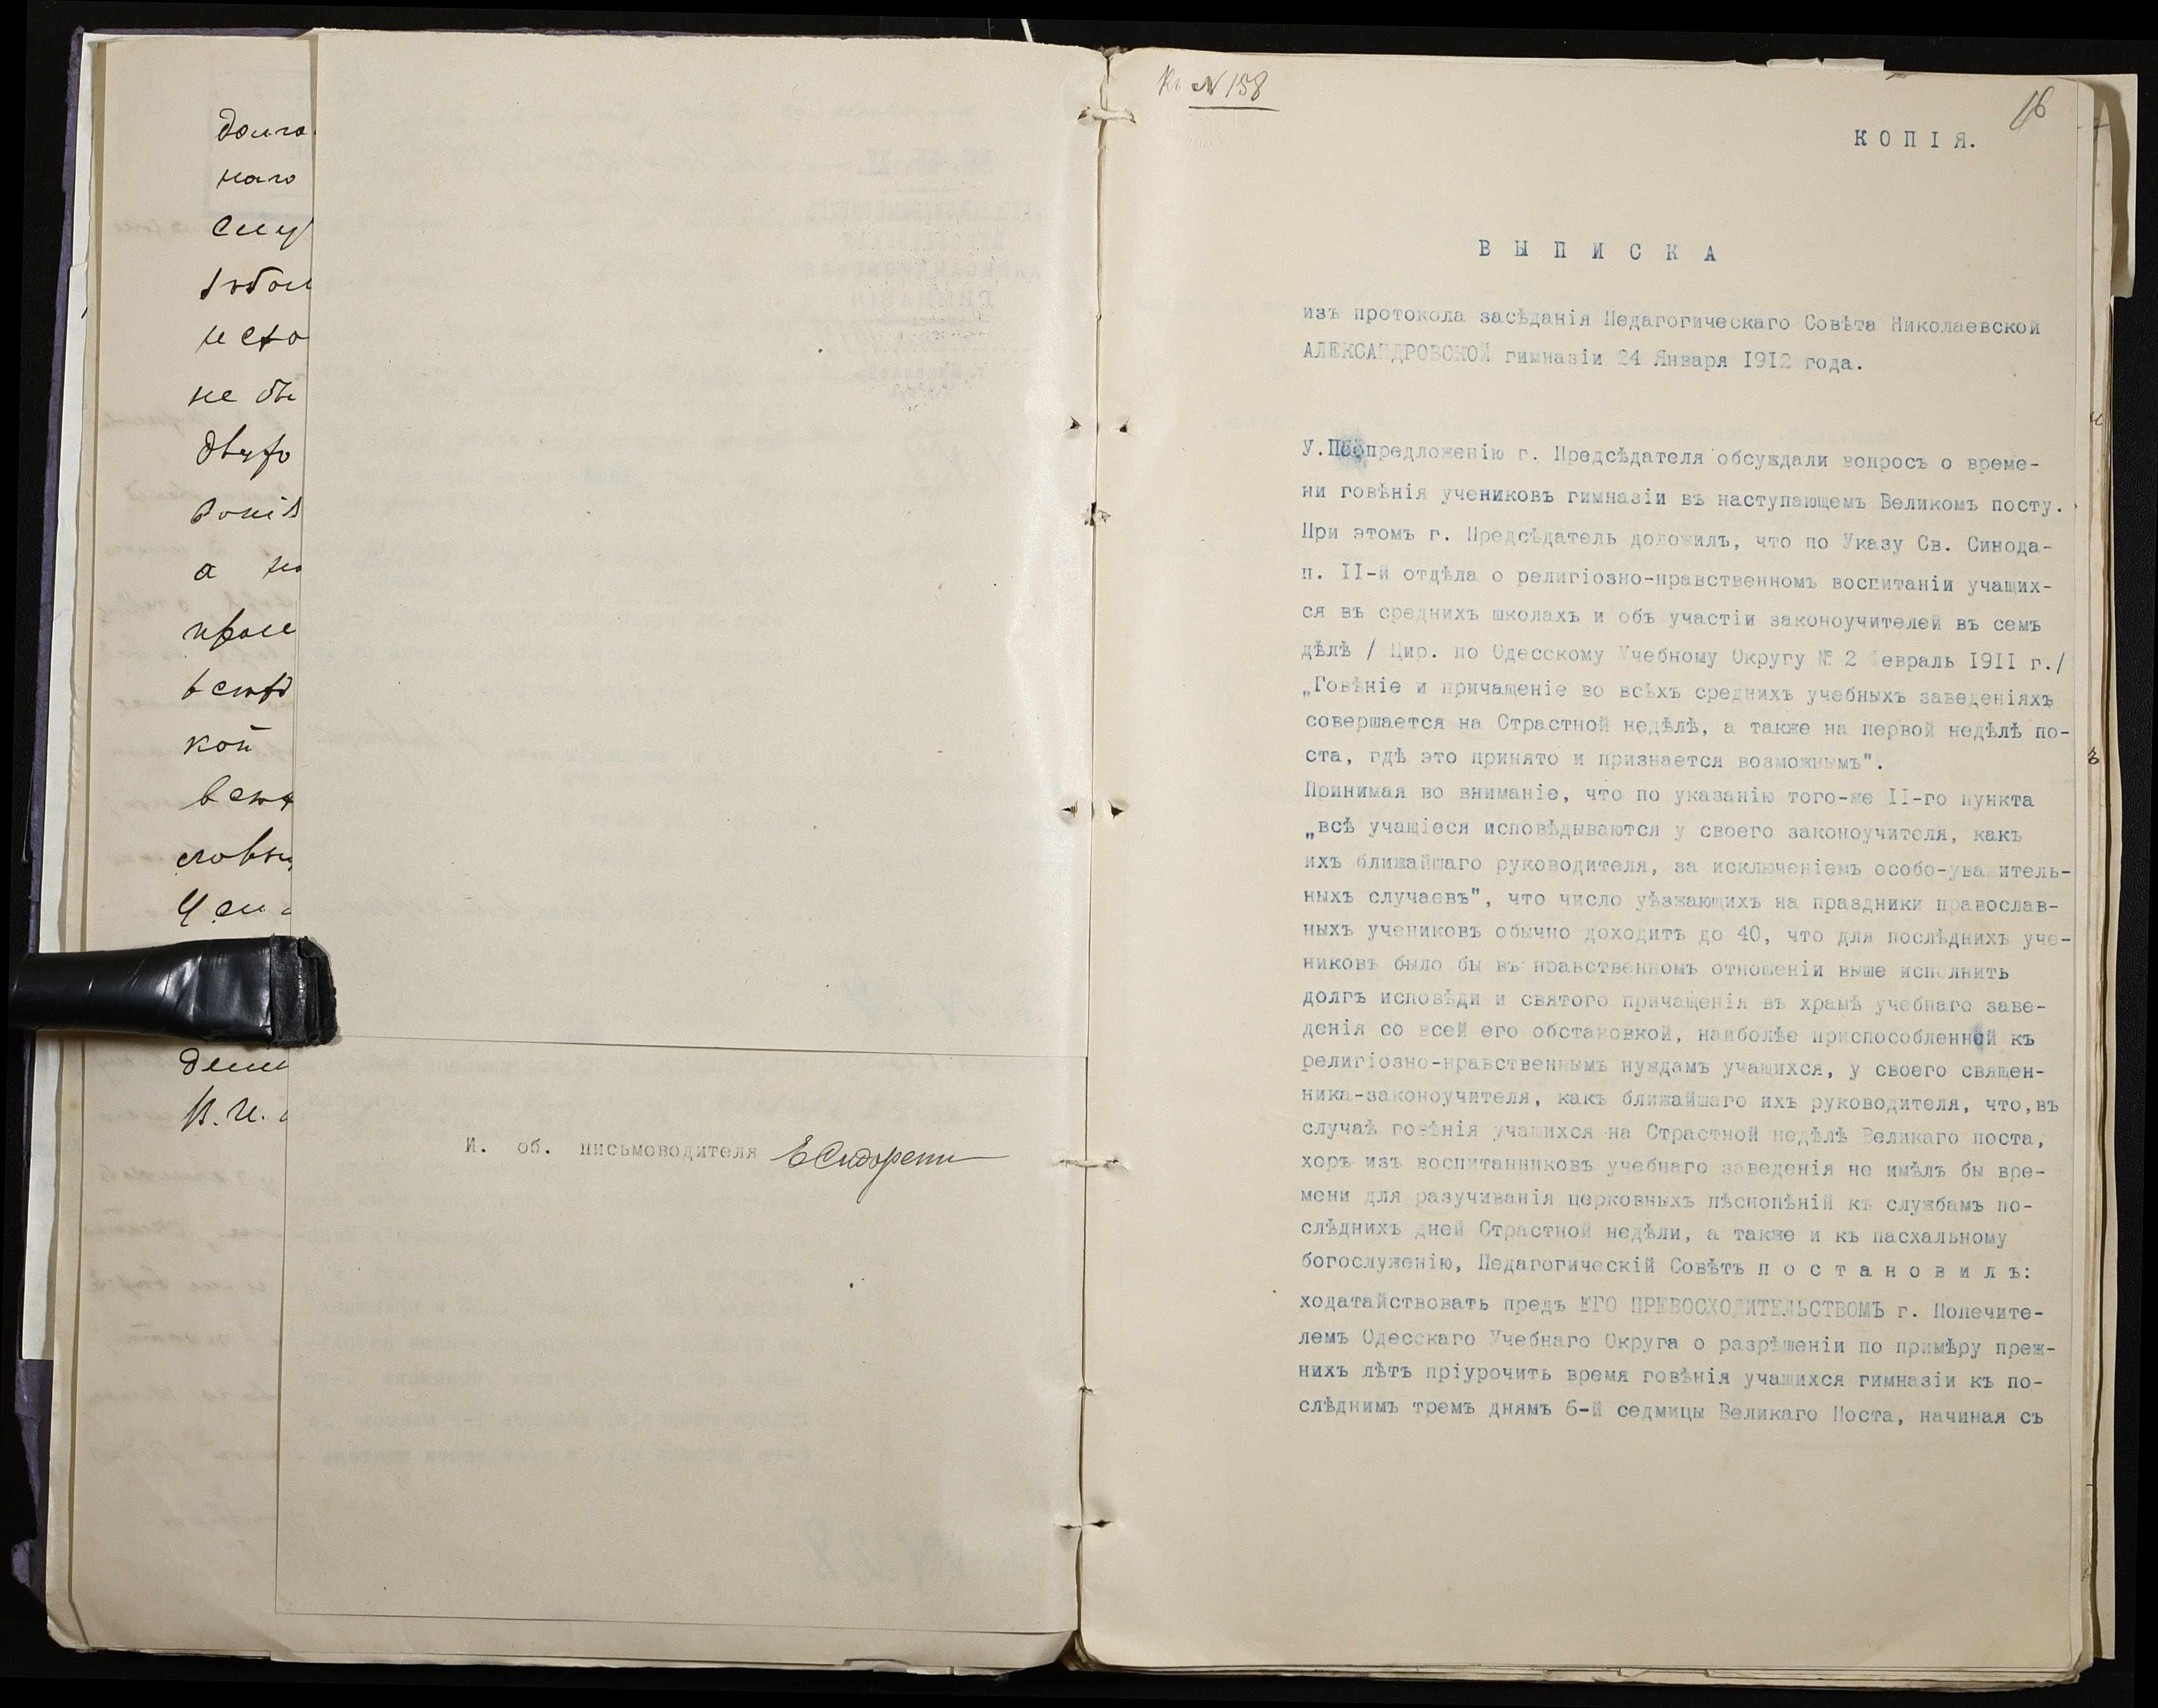 долго
наго
не бы
а
кой
И. об. письмоводителя
Къ № 158
16
КОПІЯ.
ВЫПИСКА
изъ протокола засѣданія Педагогическаго Совѣта Николаевской
АЛЕКСАНДРОВСКОЙ гимназіи 24 Января 1912 года.
У. По предложенію г. Предсѣдателя обсуждали вопросъ о време-
ни говѣнія учениковъ гимназіи въ наступающемъ Великомъ посту.
При этомъ г. Предсѣдатель доложилъ, что по Указу Св. Синода-
п. II-й отдѣла о религіозно-нравственномъ воспитаніи учащих-
ся въ среднихъ школахъ и объ участіи законоучителей въ семъ
дѣлѣ / Цир. по Одесскому Учебному Округу № 2 февраль 1911 г./
„Говѣніе и причащеніе во всѣхъ среднихъ учебныхъ заведеніяхъ
совершается на Страстной недѣлѣ, а также на первой недѣлѣ по-
ста, гдѣ это принято и признается возможнымъ".
Принимая во вниманіе, что по указанію того-же II-го пункта
„всѣ учащіеся исповѣдываются у своего законоучителя, какъ
ихъ ближайшаго руководителя, за исключеніемъ особо-уважитель-
ныхъ случаевъ", что число уѣзжающихъ на праздники православ-
ныхъ учениковъ обычно доходитъ до 40, что для послѣднихъ уче-
никовъ было бы въ нравственномъ отношеніи выше исполнить
долгъ исповѣди и святого причащенія въ храмѣ учебнаго заве-
денія со всей его обстановкой, наиболѣе приспособленной къ
религіозно-нравственнымъ нуждамъ учащихся, у своего священ-
ника-законоучителя, какъ ближайшаго ихъ руководителя, что,въ
случаѣ говѣнія учащихся на Страстной недѣлѣ Великаго поста,
хоръ изъ воспитанниковъ учебнаго заведенія не имѣлъ бы вре-
мени для разучиванія церковныхъ пѣснопѣній къ службамъ по-
слѣднихъ дней Страстной недѣли, а также и къ пасхальному
богослуженію, Педагогическій Совѣтъ постановилъ:
ходатайствовать предъ ЕГО ПРЕВОСХОДИТЕЛЬСТВОМЪ г. Попечите-
лемъ Одесскаго Учебнаго Округа о разрѣшеніи по примѣру преж-
нихъ лѣтъ пріурочить время говѣнія учащихся гимназіи къ по-
слѣднимъ тремъ днямъ 6-й седмицы Великаго Поста, начиная съ